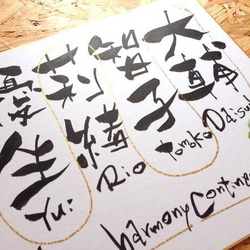 大輔
Daisu
智子
tomoko
Rio
Yui
harmony Contin